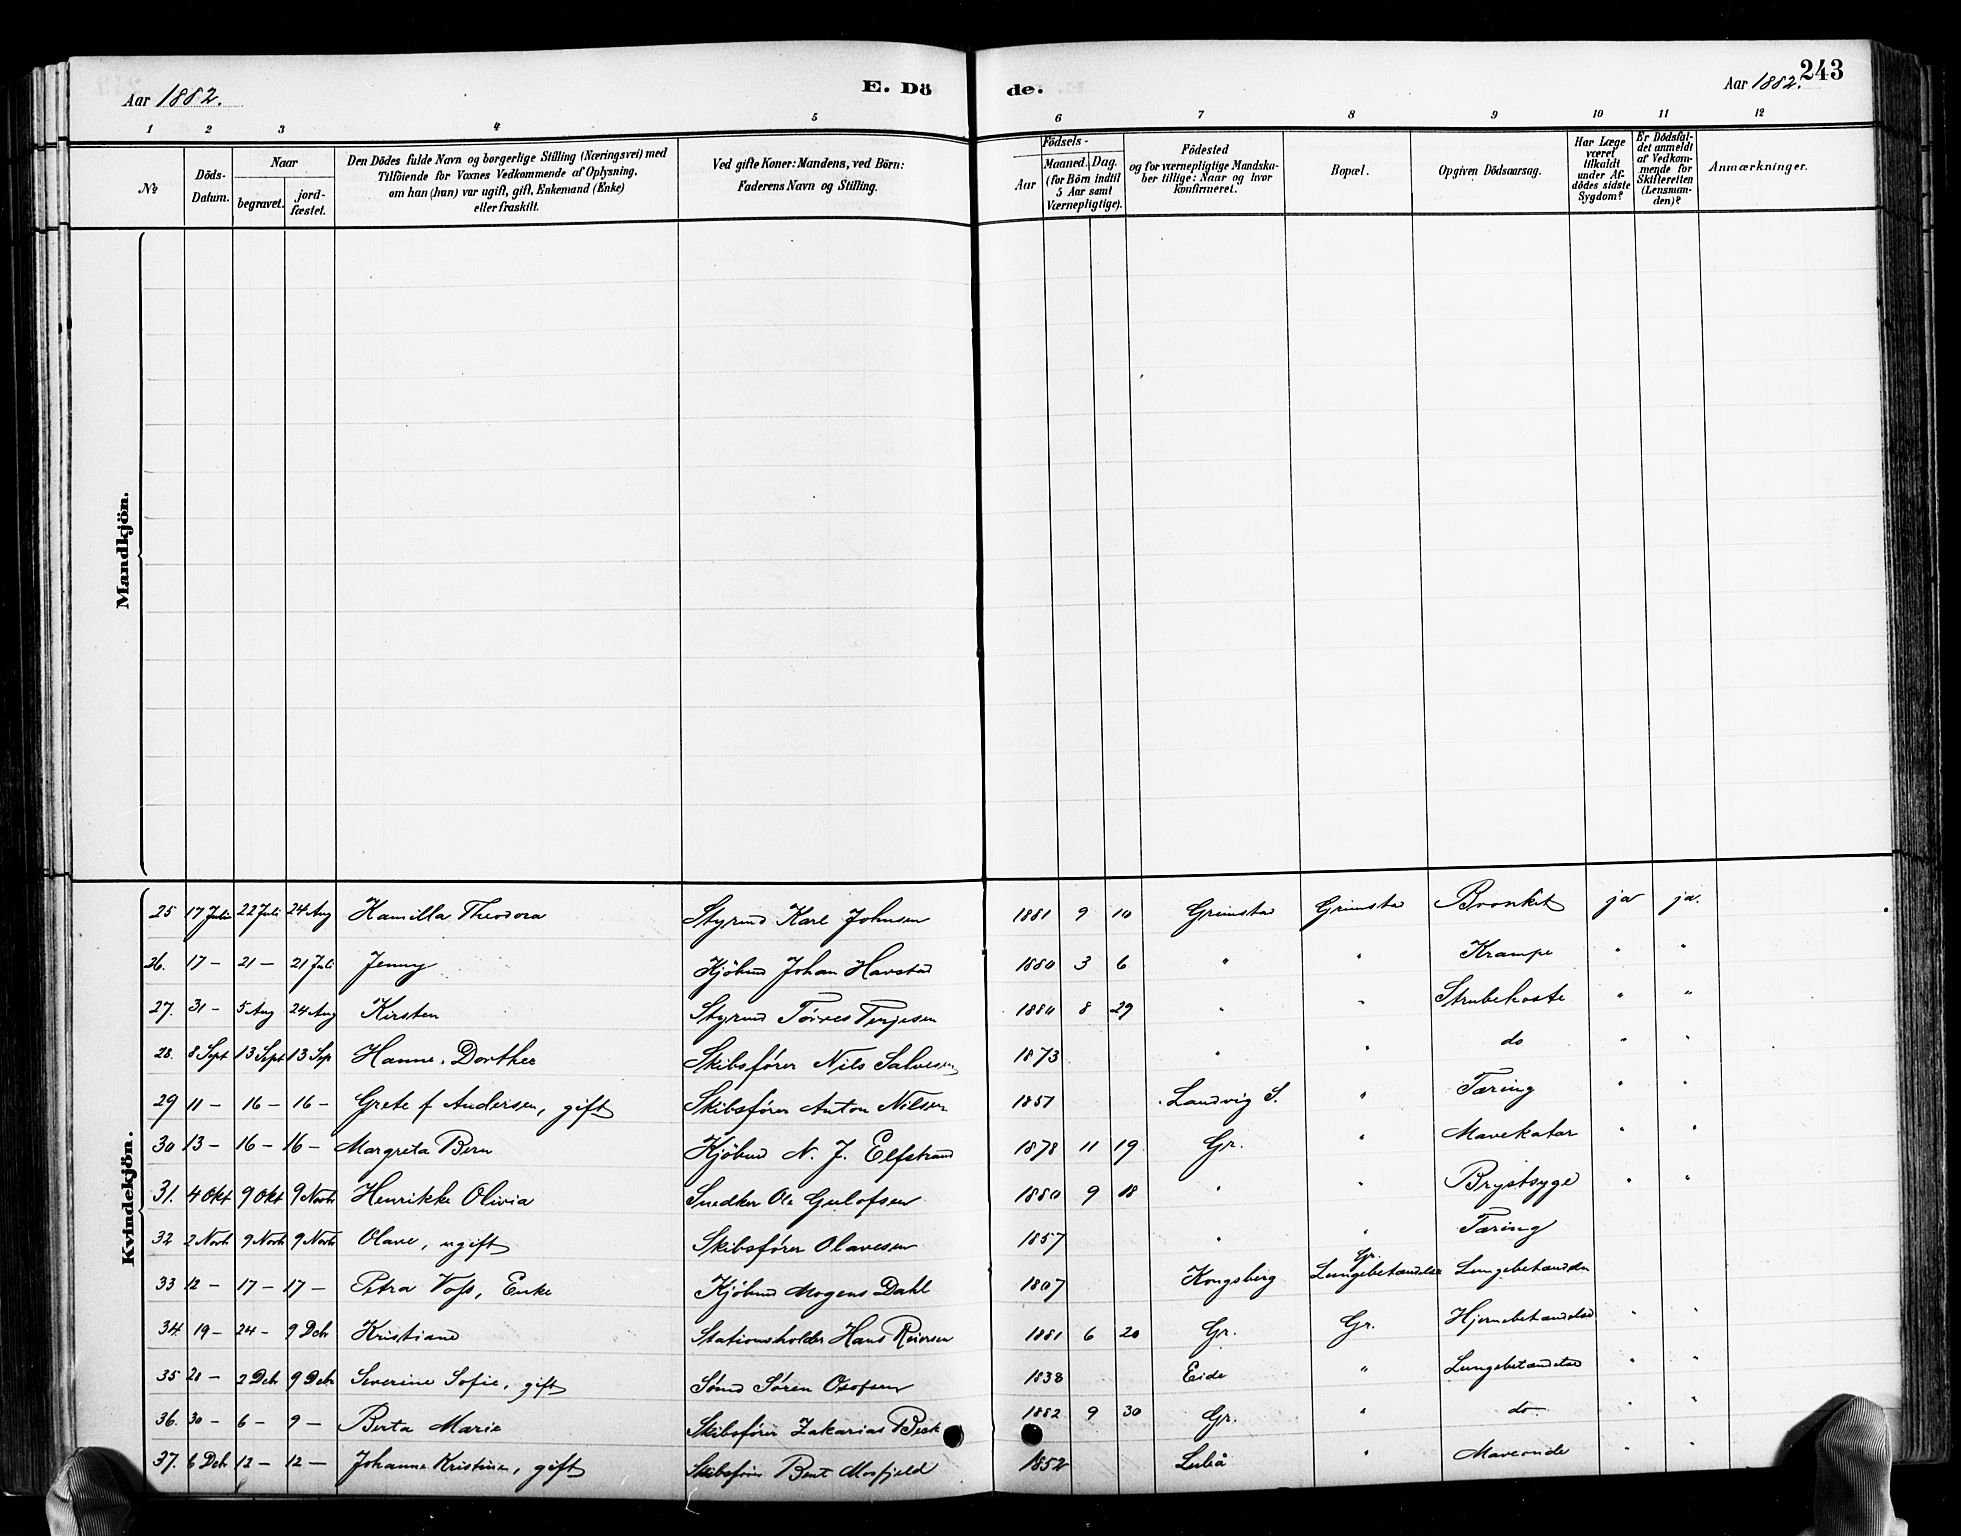 Aar 1882. E. Dö de. Aar 1882. 243
1 2 3 4 5 6 7 8 9 10 11 12
No
Döds-Datum.
Naar
begravet. jord-fæstet.
Den Dödes fulde Navn og borgerlige Stilling (Næringsvei) med
Tilföiende for Voxnes Vedkommende af Oplysning,
om han (hun) var ugift, gift, Enkemand (Enke)
eller fraskilt.
Ved gifte Koner: Mandens, ved Börn:
Faderens Navn og Stilling.
Födsels-
Aar
Maaned. Dag.
(for Börn indtil
5 Aar samt
Værnepligtige).
Födested
og for værnepligtige Mandska-
ber tillige: Naar og hvor
konfirmeret.
Bopæl.
Opgiven Dödsaarsag.
Har Læge
været
tilkaldt
under Af-
dödes sidste
Sygdom?
Er Dödsfal-
det anmeldt
af Vedkom-
mende for
Skifteretten
(Lensman-
den)?
Anmærkninger.
Mandkjön.
Kvindekjön.
25 17 Juli 22 Juli 24 Aug Kamilla Theodora Styrmd Karl Johnsen 1881 9 10 Grimstad Grimstad Bronkit ja ja.
26. 17 - 21 - 21 Juli Jenny Kjöbmd Johan Havstad 1880 3 6 " " Krampe " "
27. 31 - 5 Aug 24 Aug Kirsten Styrmd Törres Terjesen 1880 8 29 " " Strubehoste " "
28. 8 Sept 13 Sept 13 Sep Hanne Dorthea Skibsfører Nils Salvesen 1873 " " do " "
29 11 - 16 - 16 - Grete f Andersen, gift Skibsfører Anton Nilsen 1851 Landvig S. " Tæring " "
30 13 - 16 - 16 - Margreta Bern Kjöbmd N. J. Elfstrand 1878 11 19 Gr. " Mavekatar " "
31. 4 Okt 9 Okt 9 Novb Henrikke Olivia Snedker Ole Gulofsen 1880 9 18 " " Brystsyge " "
32 2 Novb 9 Novb 9 Novb Olave, ugift Skibsfører Olavesen 1857 " " Tæring
33 12 - 17 - 17 - Petra Voss, Enke Kjöbmd Mogens Dahl 1807 Kongsberg Gr. Lungebetændelse Lungebetændelse
34 19 - 24 - 9 Dcb Kristiane Stationsholder Hans Reiersen 1881 6 20 Gr. Gr. Hjernebetændelse " "
35 28 - 2 Dcb 9 Dcb Severine Sofie, gift Sømd Søren Osofsen 1838 Eide " Lungebetændelse " "
36. 30 - 6 - 9 - Berta Marie Skibsfører Zakarias Beck 1882 9 30 Gr. " do. " "
37. 6 Dcb 12 - 12 - Johanne Kristine, gift Skibsfører Bent Mosfjeld 1852 Luleå " Maveonde " "